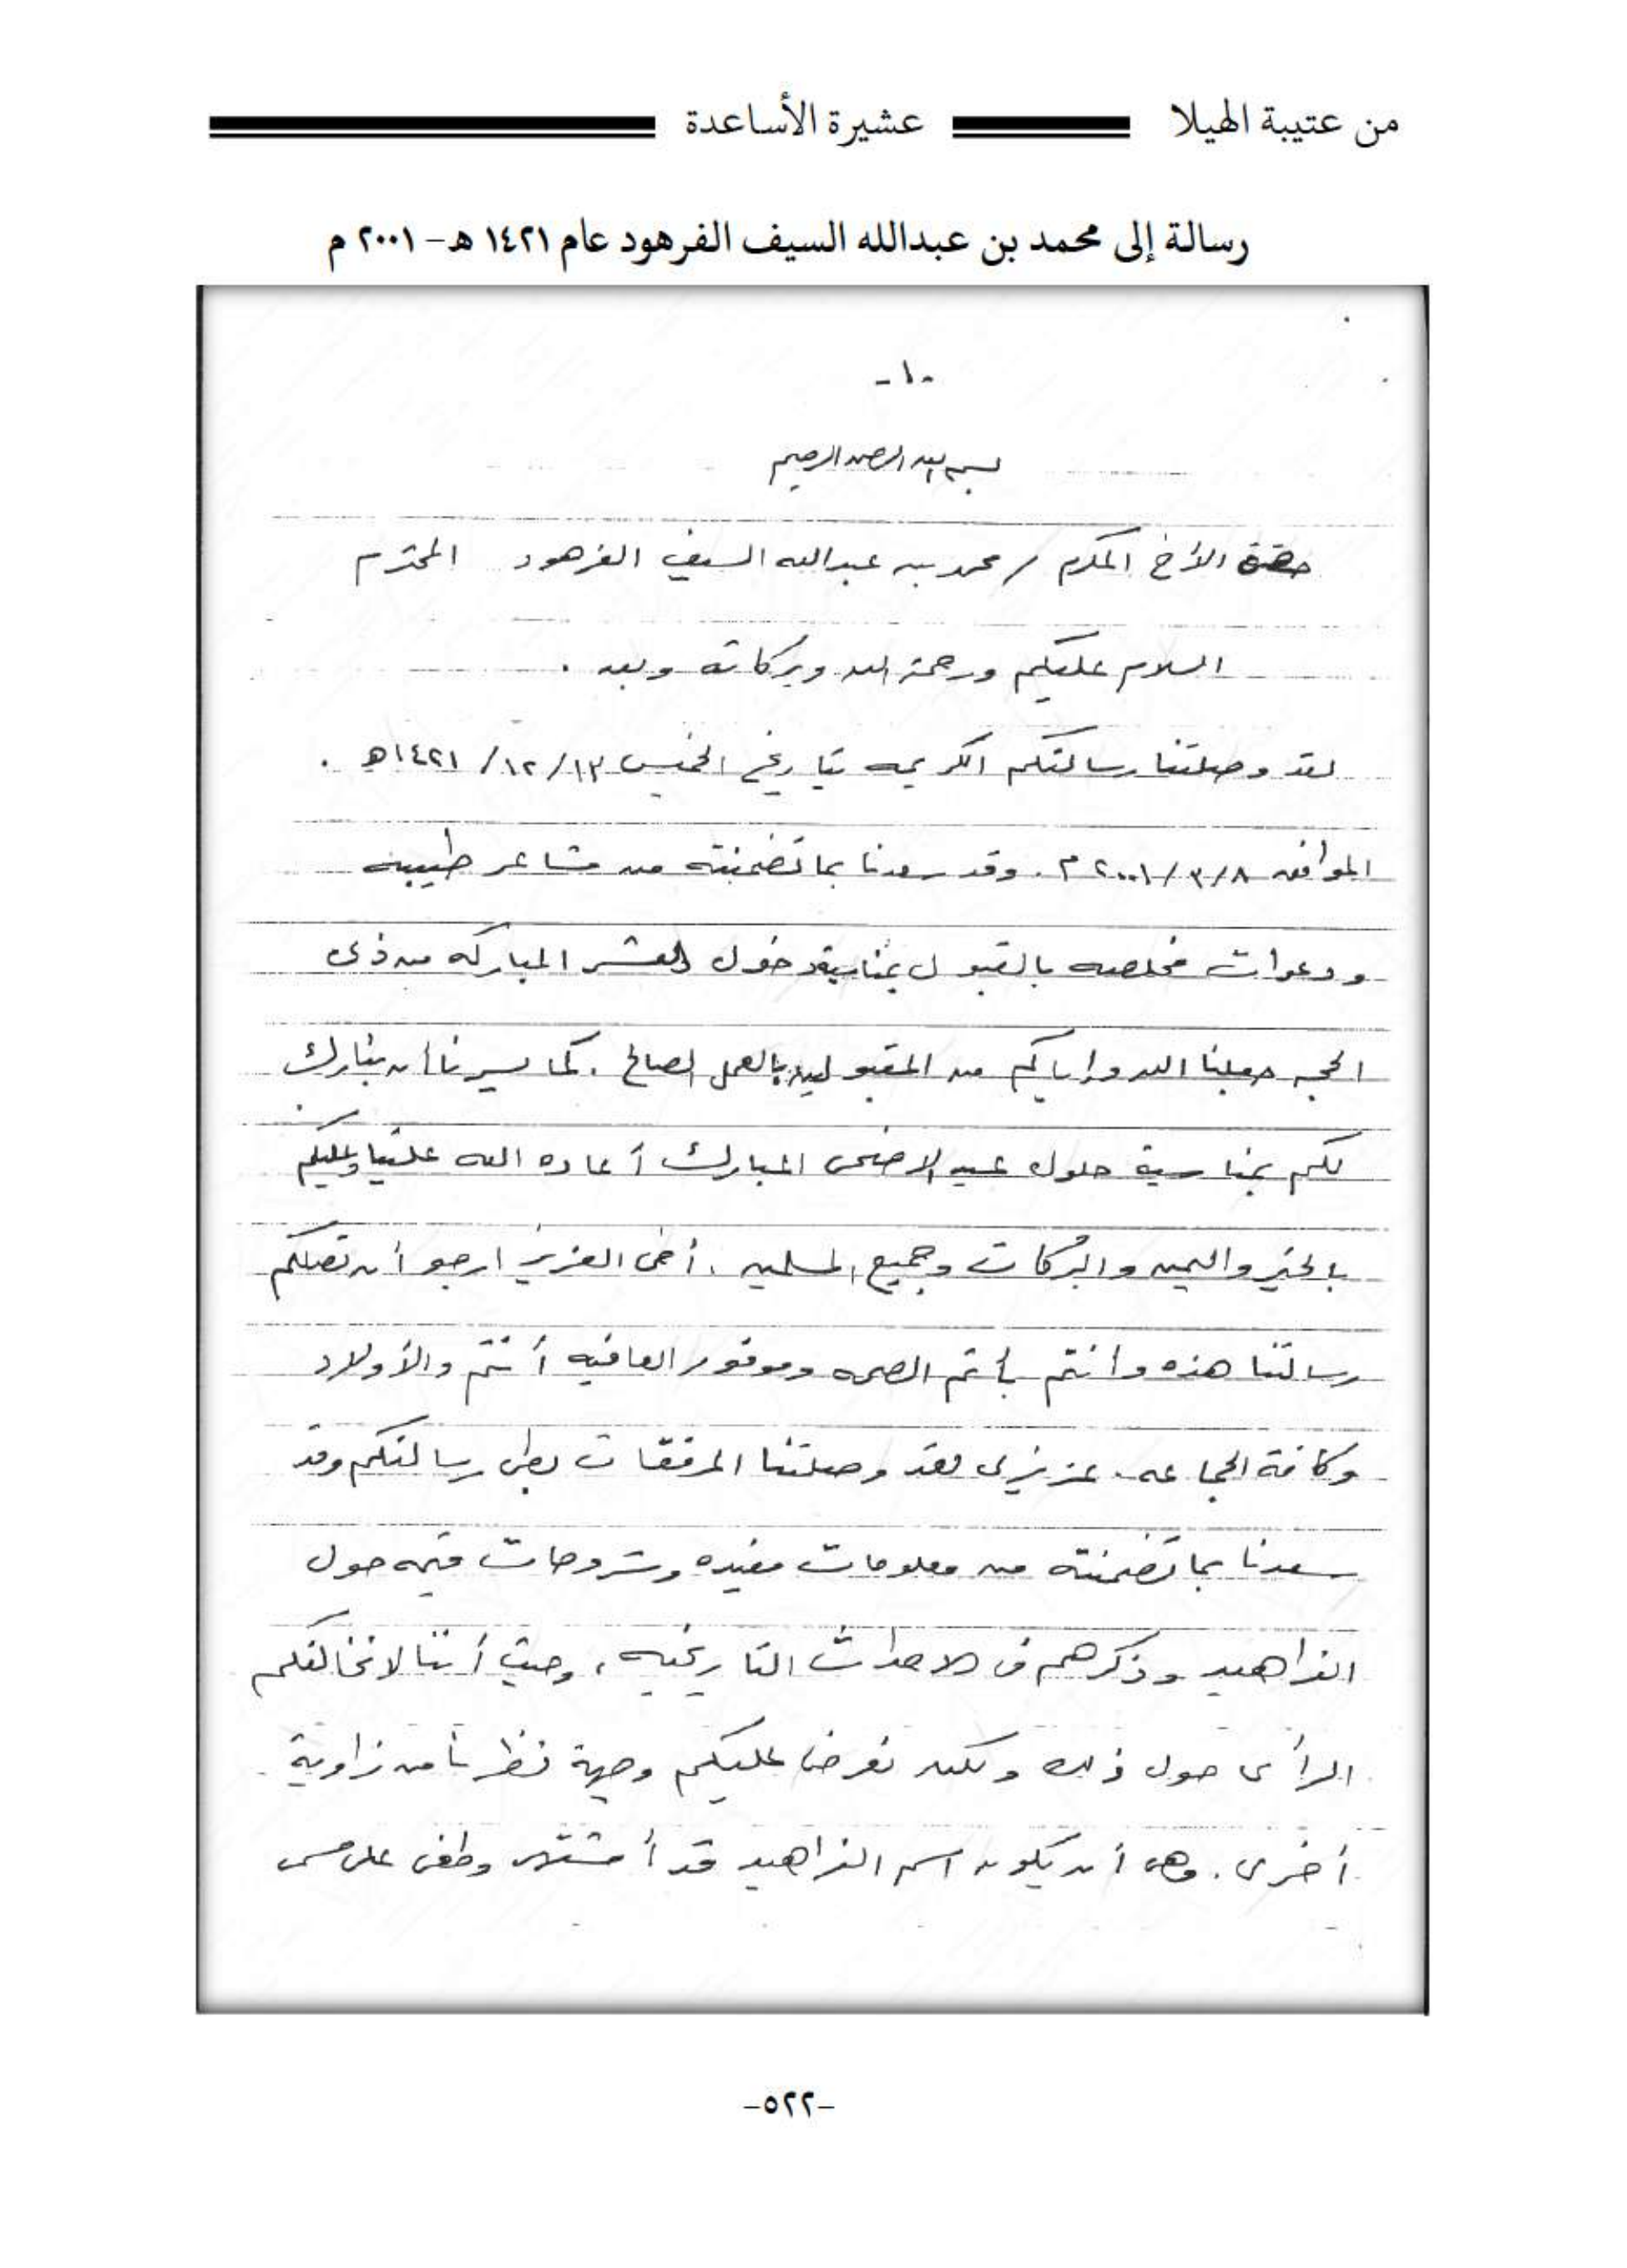 من عتيبة الهيلا عشيرة الأساعدة
رسالة إلى محمد بن عبدالله السيف الفرهود عام ١٤٢١ هـ - ٢٠٠١ م
-١-
بسم الله الرحمن الرحيم
حضرة الأخ المكرم / محمد بن عبدالله السيف الفرهود المحترم
السلام عليكم ورحمة الله وبركاته وبعد .
لقد وصلتنا رسالتكم الكريمه بتاريخ الخميس ١٣/١٢/١٤٢١هـ .
الموافق ٨/٣/٢٠٠١ م . وقد سعدنا بما تضمنته من مشاعر طيبه
ودعوات مخلصه بالقبول بمناسبة دخول العشر المباركه من ذى
الحجه جعلنا الله وإياكم من المقبولين بالعمل الصالح . كما يسرنا أن نبارك
لكم بمناسبة حلول عيد الاضحى المبارك أعاده الله علينا وعليكم
بالخير واليمن والبركات وجميع المسلمين . أخى العزيز ارجو أن تصلكم
رسالتنا هذه وأنتم بأتم الصحه وموفور العافيه أنتم والأولاد
وكافة الجماعه . عزيزى لقد وصلتنا المرفقات بطى رسالتكم وقد
سعدنا بما تضمنته من معلومات مفيده وشروحات قيمه حول
الفراهيد وذكرهم فى الاحداث التاريخيه ، وحيث أننا لانخالفكم
الرأى حول ذلك ولكن نعرض عليكم وجهة نظرنا من زاوية
أخرى . وهى أن يكون اسم الفراهيد قد أشتهر وطغى على مسمى
-٥٢٢-